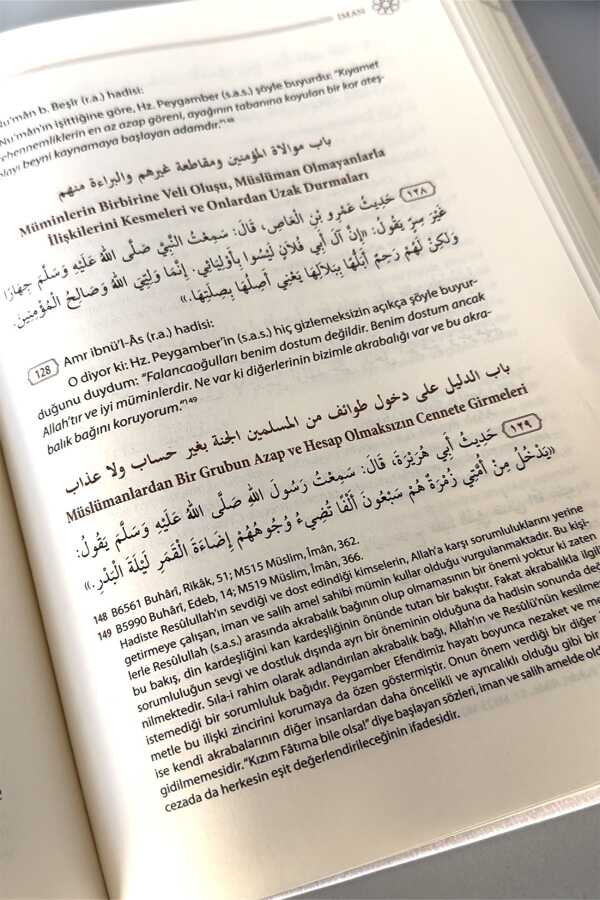 İMAN
Nu'mân b. Beşîr (r.a.) hadisi:
Nu'mân'ın işittiğine göre, Hz. Peygamber (s.a.s.) şöyle buyurdu: "Kıyamet
cehennemliklerin en az azap göreni, ayağının tabanına koyulan bir kor ateş-
olayı beyni kaynamaya başlayan adamdır."148
باب موالاة المؤمنين ومقاطعة غيرهم والبراءة منهم
Müminlerin Birbirine Veli Oluşu, Müslüman Olmayanlarla
İlişkilerini Kesmeleri ve Onlardan Uzak Durmaları
١٢٨ حَدِيثُ عَمْرِو بْنِ الْعَاصِ، قَالَ: سَمِعْتُ النَّبِيَّ صَلَّى اللهُ عَلَيْهِ وَسَلَّمَ جِهَارًا
غَيْرَ سِرٍّ يَقُولُ: «إِنَّ آلَ أَبِي فُلَانٍ لَيْسُوا بِأَوْلِيَائِي. إِنَّمَا وَلِيِّيَ اللهُ وَصَالِحُ الْمُؤْمِنِينَ.
وَلَكِنْ لَهُمْ رَحِمٌ أَبُلُّهَا بِبَلَالِهَا يَعْنِي أَصِلُهَا بِصِلَتِهَا.»
128 Amr ibnü'l-Âs (r.a.) hadisi:
O diyor ki: Hz. Peygamber'in (s.a.s.) hiç gizlemeksizin açıkça şöyle buyur-
duğunu duydum: "Falancaoğulları benim dostum değildir. Benim dostum ancak
Allah'tır ve iyi müminlerdir. Ne var ki diğerlerinin bizimle akrabalığı var ve bu akra-
balık bağını koruyorum."149
باب الدليل على دخول طوائف من المسلمين الجنة بغير حساب ولا عذاب
Müslümanlardan Bir Grubun Azap ve Hesap Olmaksızın Cennete Girmeleri
١٢٩ حَدِيثُ أَبِي هُرَيْرَةَ، قَالَ: سَمِعْتُ رَسُولَ اللهِ صَلَّى اللهُ عَلَيْهِ وَسَلَّمَ يَقُولُ:
«يَدْخُلُ مِنْ أُمَّتِي زُمْرَةٌ هُمْ سَبْعُونَ أَلْفًا تُضِيءُ وُجُوهُهُمْ إِضَاءَةَ الْقَمَرِ لَيْلَةَ الْبَدْرِ.»
148 B6561 Buhârî, Rikâk, 51; M515 Müslim, Îmân, 362.
149 B5990 Buhârî, Edeb, 14; M519 Müslim, Îmân, 366.
Hadiste Resûlullah'ın sevdiği ve dost edindiği kimselerin, Allah'a karşı sorumluluklarını yerine
getirmeye çalışan, iman ve salih amel sahibi mümin kullar olduğu vurgulanmaktadır. Bu kişi-
lerle Resûlullah (s.a.s.) arasında akrabalık bağının olup olmamasının bir önemi yoktur ki zaten
bu bakış, din kardeşliğini kan kardeşliğinin önünde tutan bir bakıştır. Fakat akrabalıkla ilgili
sorumluluğun sevgi ve dostluk dışında ayrı bir öneminin olduğuna da hadisin sonunda değ
nilmektedir. Sıla-i rahim olarak adlandırılan akrabalık bağı, Allah'ın ve Resûlü'nün kesilmes
istemediği bir sorumluluk bağıdır. Peygamber Efendimiz hayatı boyunca nezaket ve me
metle bu ilişki zincirini korumaya da özen göstermiştir. Onun önem verdiği bir diğer
ise kendi akrabalarının diğer insanlardan daha öncelikli ve ayrıcalıklı olduğu gibi bir
gidilmemesidir. "Kızım Fâtıma bile olsa!" diye başlayan sözleri, iman ve salih amelde old
cezada da herkesin eşit değerlendirileceğinin ifadesidir.